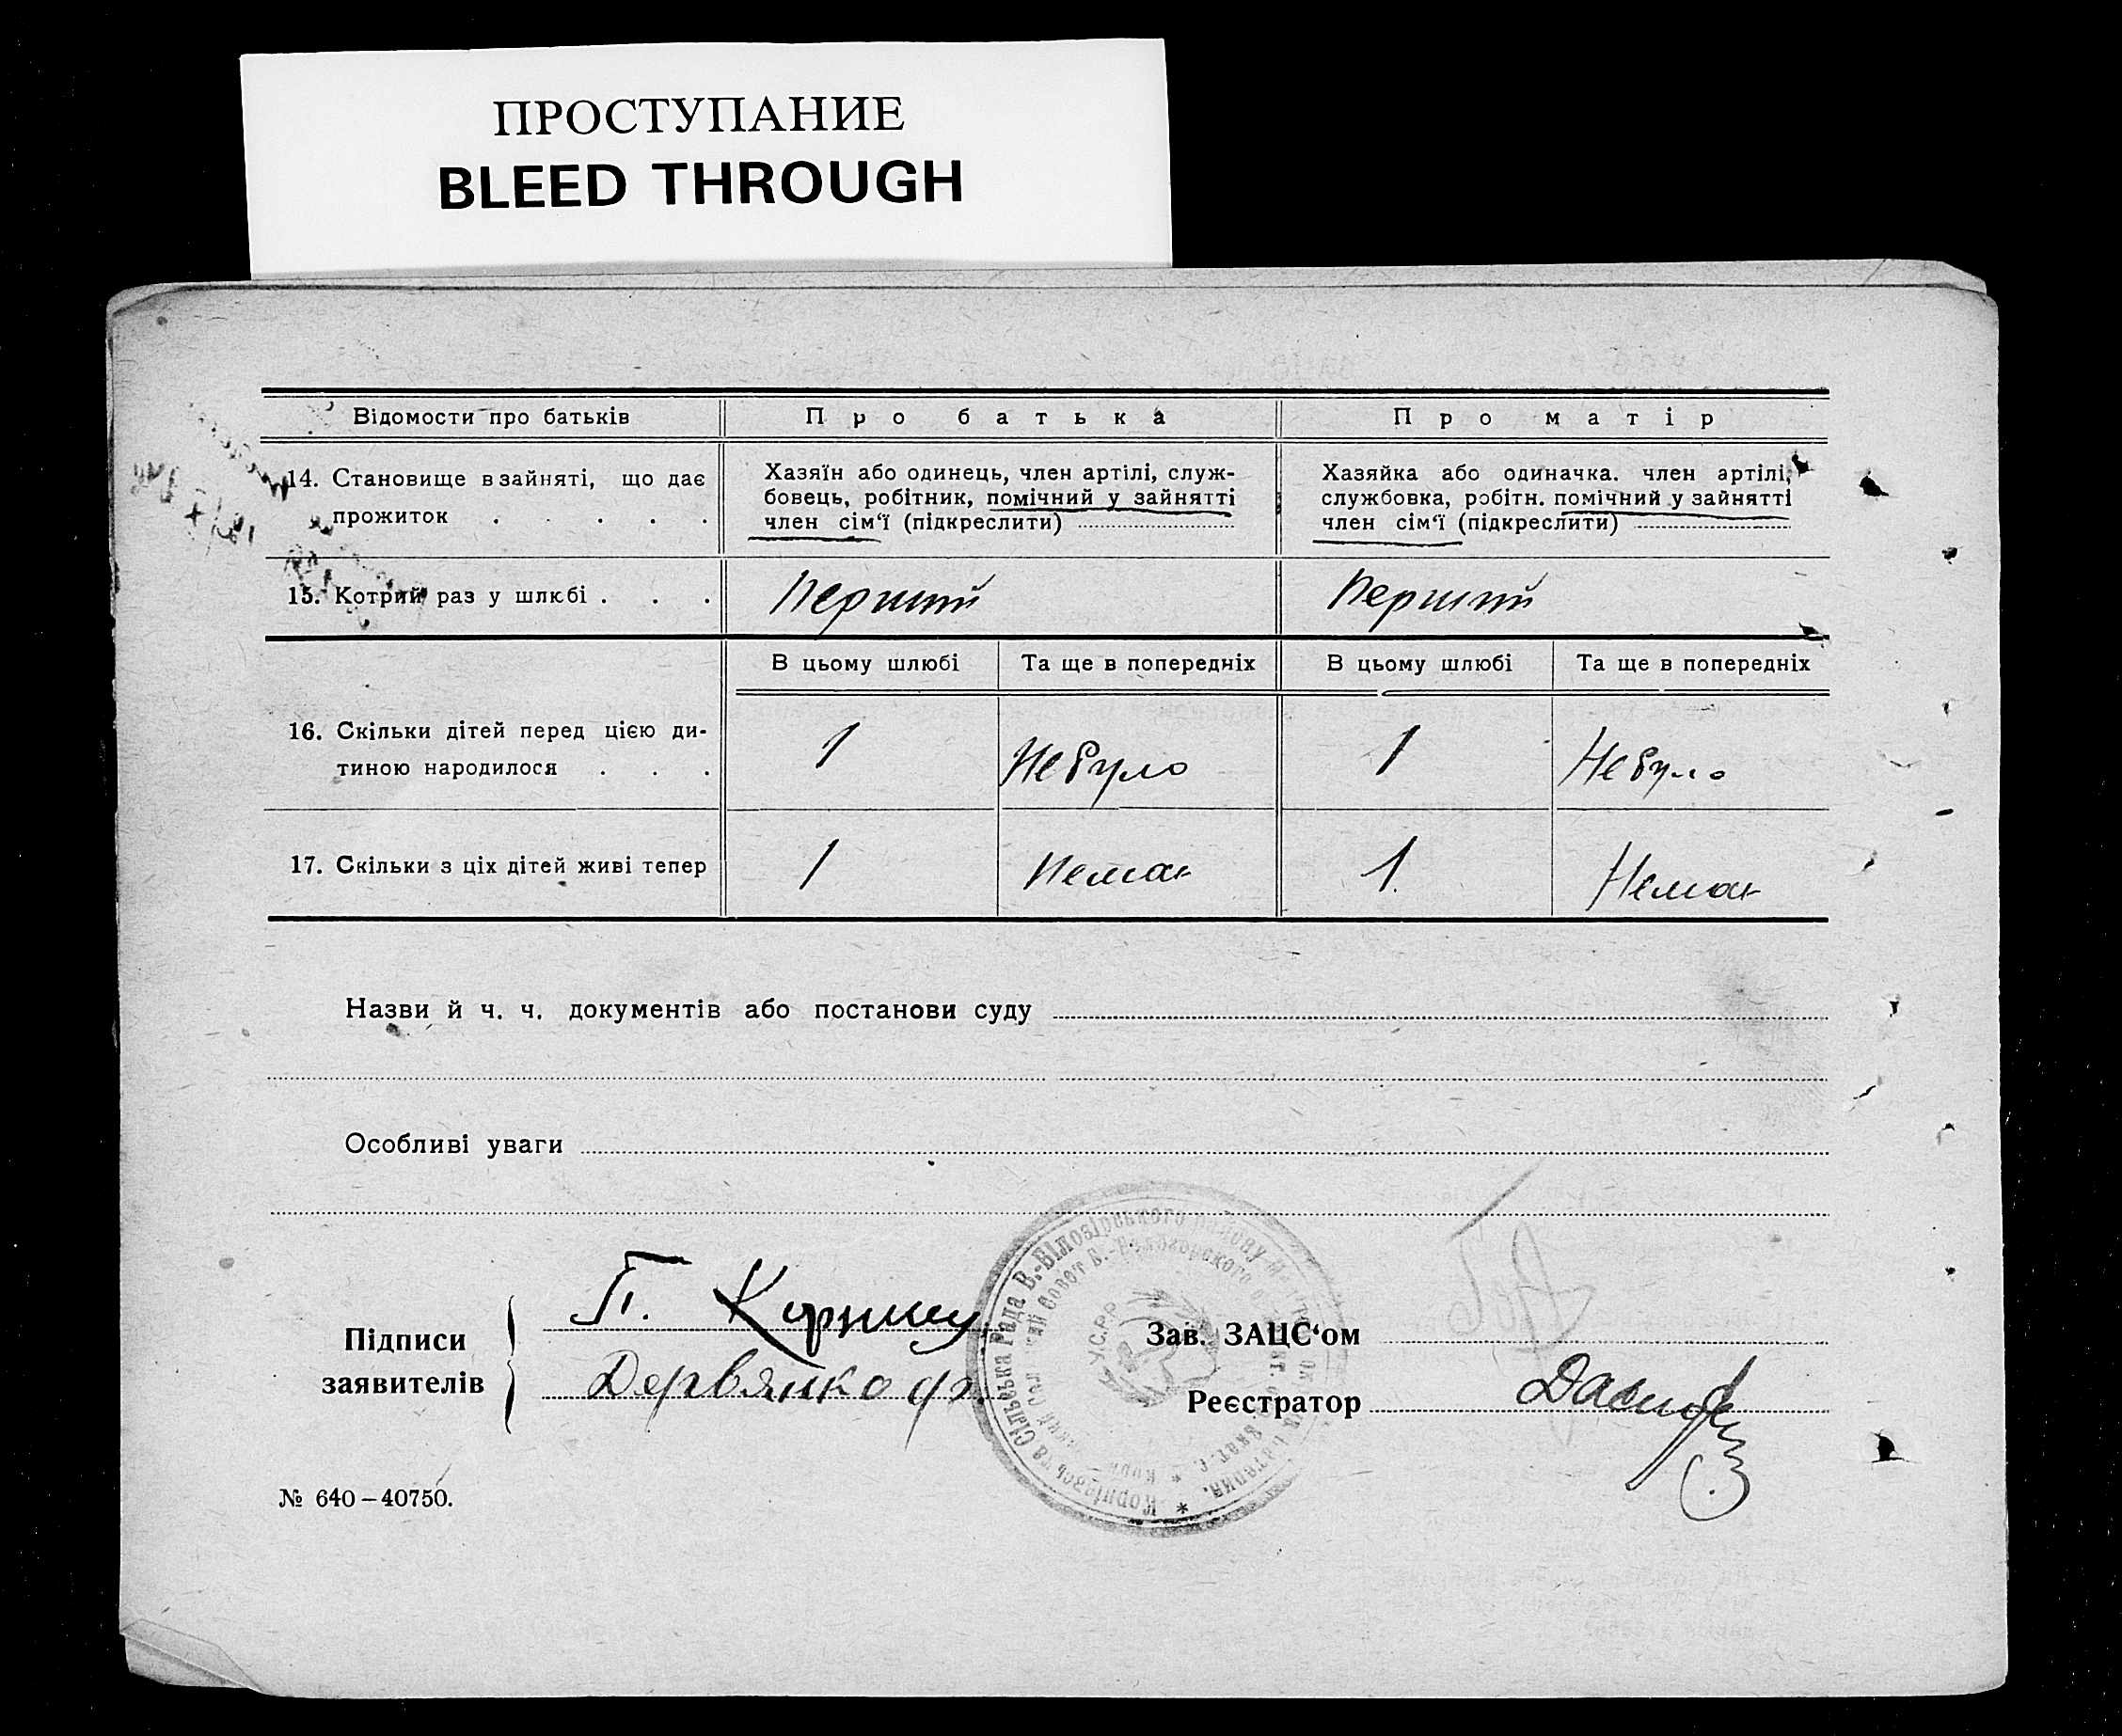 ПРОСТУПАНИЕ
BLEED THROUGH
Відомости про батьків Про батька Про матір
14. Становище в зайняті, що дає прожиток . . . . .
Хазяїн або одинець, член артілі, служ-
бовець, робітник, помічний у зайнятті
член сім‘ї (підкреслити)
Хазяйка або одиначка. член артілі,
службовка, робітн. помічний у зайнятті
член сім‘ї (підкреслити)
15. Котрий раз у шлюбі . . . Перший Перший
В цьому шлюбі Та ще в попередніх В цьому шлюбі Та ще в попередніх
16. Скільки дітей перед цією ди-
тиною народилося . . . 1 Небуло 1 Небуло
17. Скільки з ціх дітей живі тепер 1 Немає 1. Немає
Назви й ч. ч. документів або постанови суду
Особливі уваги
Підписи
заявителів
П.
Дервянко
Зав. ЗАЦС‘ом
Реєстратор
Сільська Рада В.-Білозірського району
УСРР
№ 640–40750.